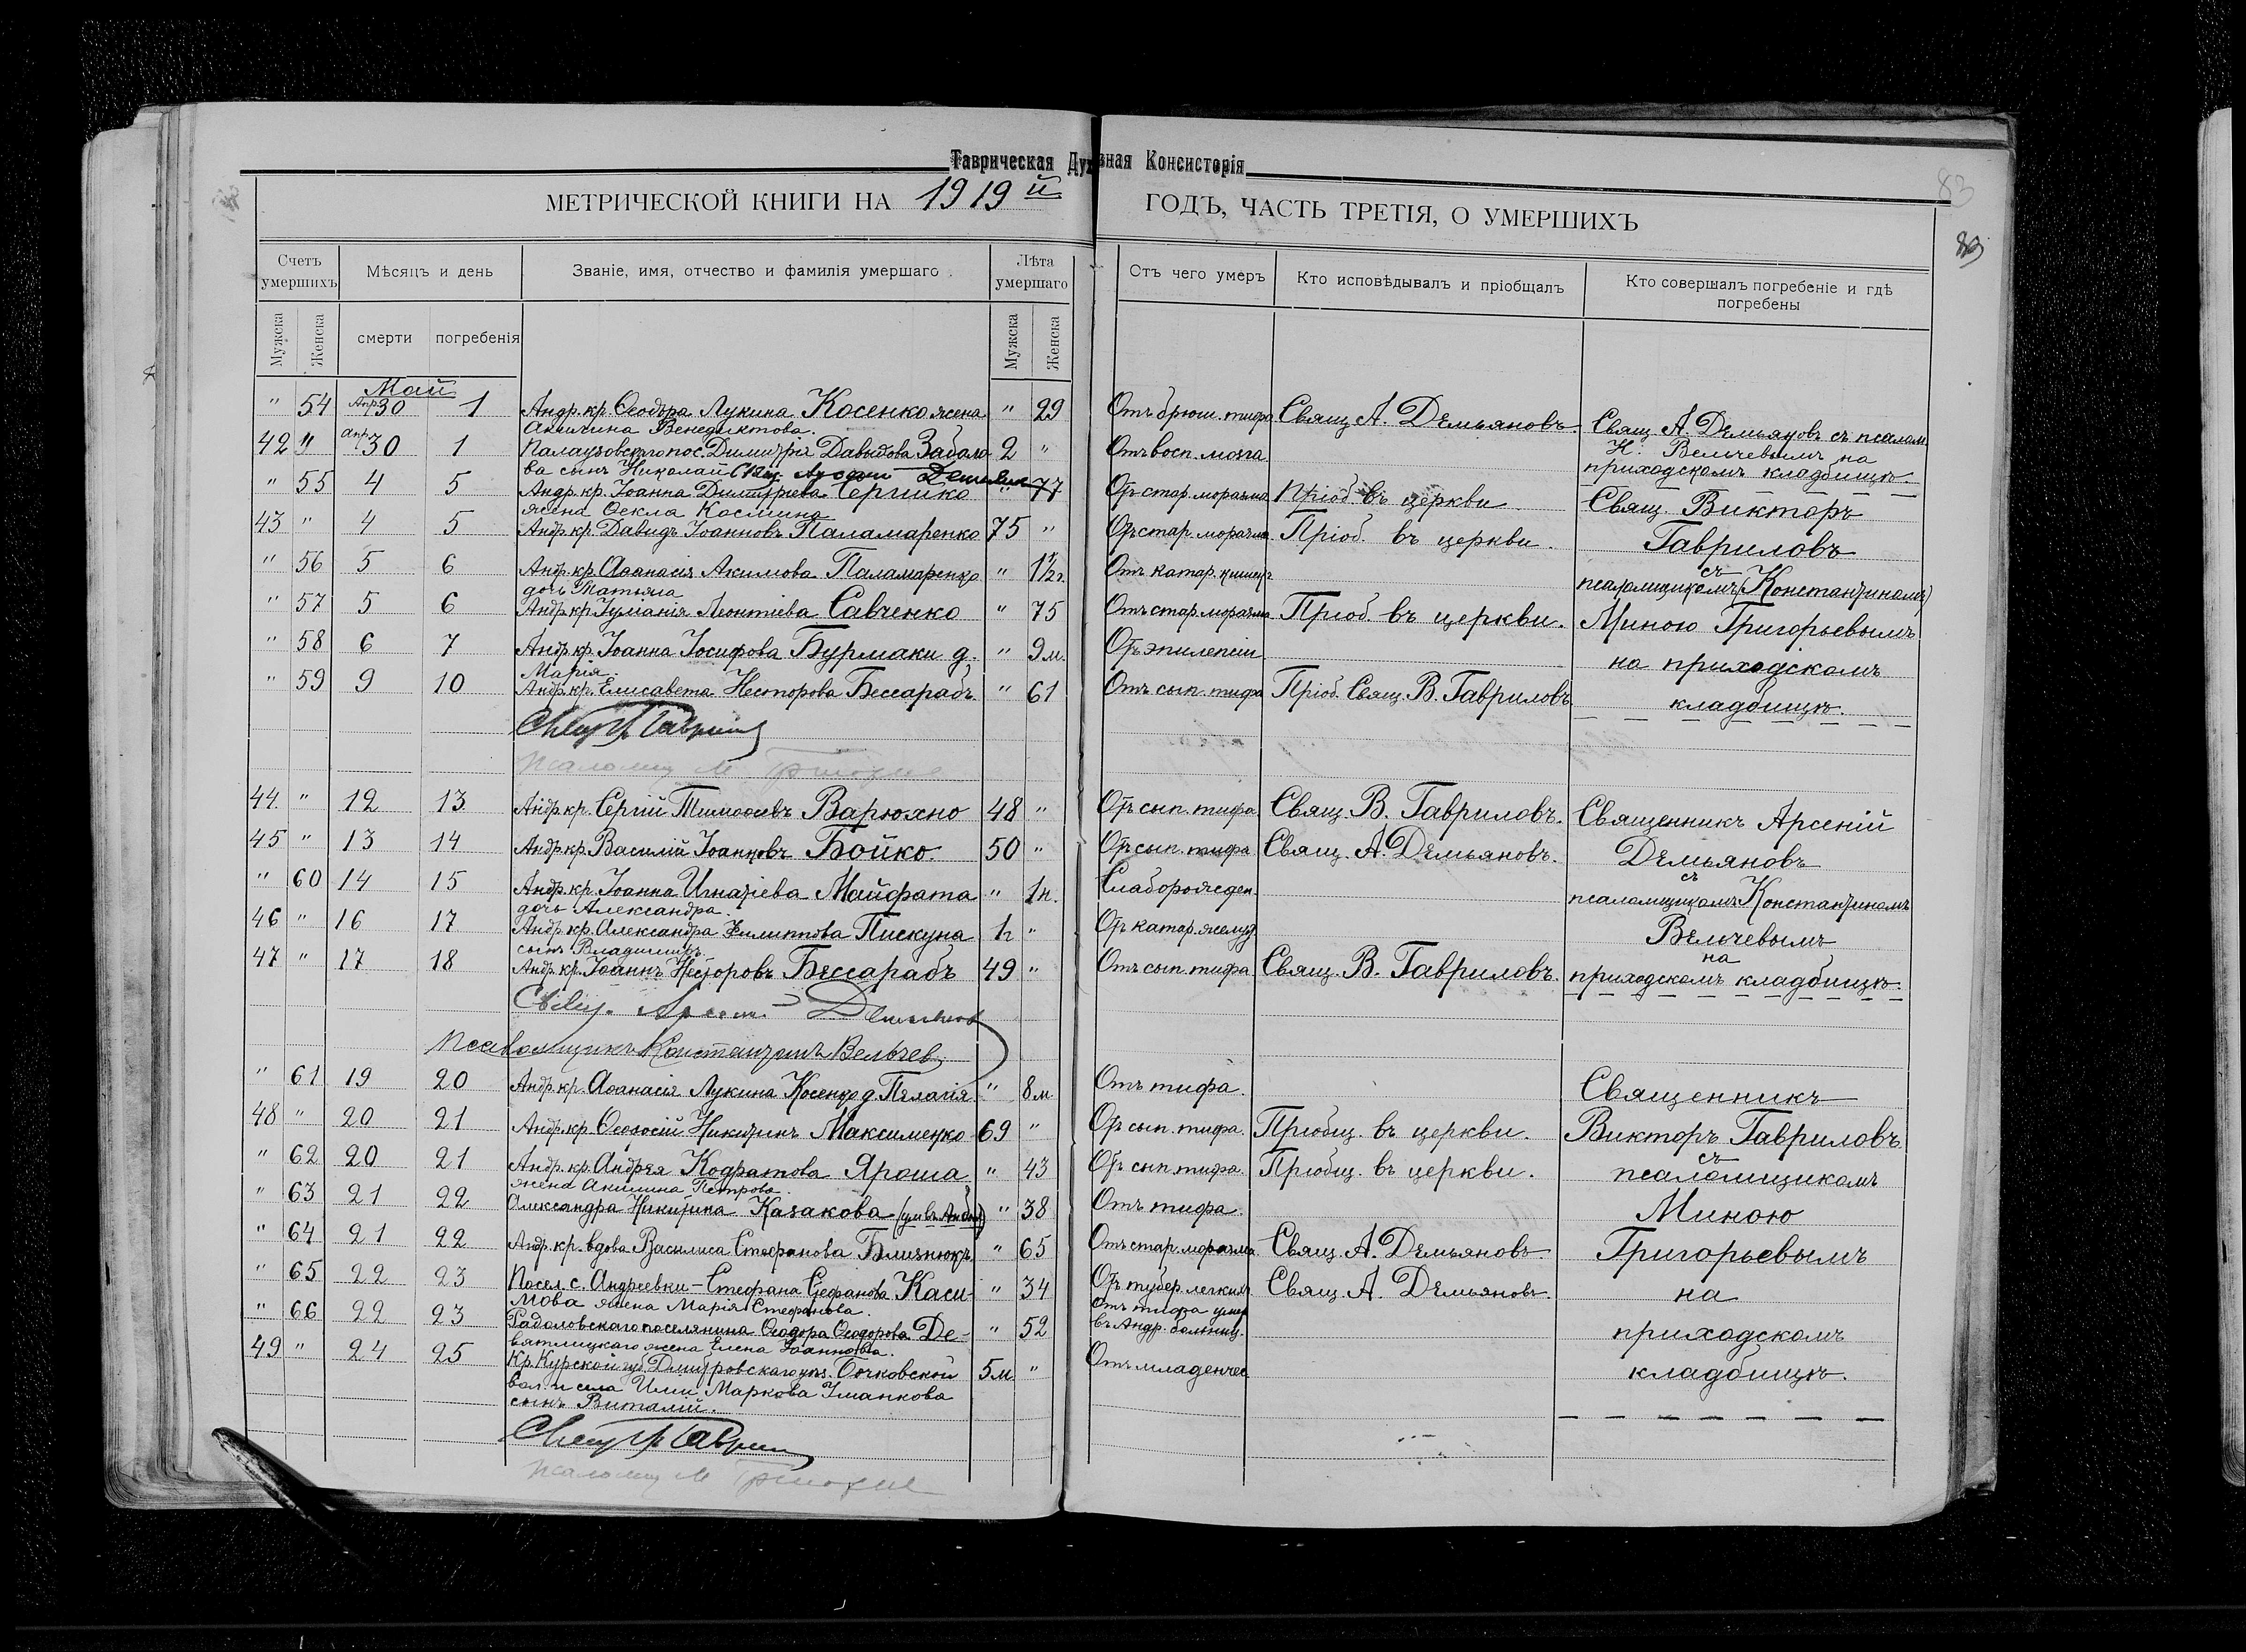 Таврическая Духовная Консисторія
МЕТРИЧЕСКОЙ КНИГИ НА 1919й ГОДЪ, ЧАСТЬ ТРЕТІЯ, О УМЕРШИХЪ
83
Счетъ умершихъ Мѣсяцъ и день Званіе, имя, отчество и фамилія умершаго. Лѣта умершаго Отъ чего умеръ Кто исповѣдывалъ и пріобщалъ Кто совершалъ погребеніе и гдѣ погребены
Мужска Женска смерти погребенія Мужска Женска
Май
" 54 Апр 30 1 Андр. кр. Ѳеодора Лукина Косенко жена " 29 Отъ брюш. тифа Свящ. А. Демьяновъ Свящ. А. Демьяновъ съ псалом.
Акилина Венедиктова.
42 " апр 30 1 Палаузовскаго пос. Димитрія Давыдова Заболо 2 " Отъ восп. мозга К. Вельчевымъ на
ва сынъ Николай Свящ. Арсеній Демьянов приходскомъ кладбищѣ.
" 55 4 5 Андр. кр. Іоанна Димитріева Сергіико " 77 Отъ стар. моразма Пріоб. въ церкви Свящ. Викторъ
жена Ѳекла Космина
43 " 4 5 Андр. кр. Давидъ Іоанновъ Паламаренко 75 " Отъ стар. моразма. Пріоб. въ церкви. Гавриловъ
" 56 5 6 Андр. кр. Аѳанасія Акимова Паламаренко " 1½ г. Отъ катар. кишеч. съ псаломщикомъ (Константиномъ)
дочь Татьяна
" 57 5 6 Андр. кр. Іуліанія Леонтіева Савченко " 75 Отъ стар. моразма Пріоб. въ церкви. Миною Григорьевымъ
" 58 6 7 Андр. кр. Іоанна Іосифова Бурмаки д. " 9 м. Отъ эпилепсіи на приходскомъ
Марія.
" 59 9 10 Андр. кр. Елисавета Несторова Бессарабъ. " 61 Отъ сып. тифа Пріоб. Свящ. В. Гавриловъ кладбищѣ.
44. " 12 13 Андр. кр. Сергій Тимоѳеевъ Варюхно 48 " Отъ сып. тифа Свящ. В. Гавриловъ. Священникъ Арсеній
45 " 13 14 Андр. кр. Василій Іоанновъ Бойко. 50 " Отъ сып. тифа Свящ. А. Демьяновъ. Демьяновъ
" 60 14 15 Андр. кр. Іоанна Игнатіева Майфата " 1 н. Слаборожден. съ псаломщикомъ Константиномъ
дочь Александра.
46 " 16 17 Андр. кр. Александра Филиппова Пискуна 1 г " Отъ катар. желуд. Вельчевымъ
сынъ Владиміръ
47 " 17 18 Андр. кр. Іоаннъ Несторовъ Бессарабъ 49 " Отъ сып. тифа Свящ. В. Гавриловъ. на приходскомъ кладбищѣ.
Свящ. Арсен. Демьянов
Псаломщикъ Константинъ Вельчев
" 61 19 20 Андр. кр. Аѳанасія Лукина Косенко д. Пелагія. " 8 м Отъ тифа. Священникъ
48 " 20 21 Андр. кр. Ѳеодосій Никитинъ Максименко 69 " Отъ сып. тифа. Пріобщ. въ церкви. Викторъ Гавриловъ
" 62 20 21 Андр. кр. Андрея Кодратова Яроша, " 43 Отъ сып. тифа. Пріобщ. въ церкви. съ псаломщикомъ
жена Акилина Петрова.
" 63 21 22 Александра Никитина Казакова " 38 Отъ тифа. Миною
" 64 21 22 Андр. кр. вдова Василиса Стефанова Близнюкъ. " 65 Отъ стар. моразма. Свящ. А. Демьяновъ. Григорьевымъ
" 65 22 23 Посел. с. Андреевки - Стефана Стефанова Каси- " 34 Отъ тубер. легкихъ Свящ. А. Демьяновъ. на
мова жена Марія Стефанова.
" 66 22 23 Радоловскаго поселянина Ѳеодора Ѳеодорова Де- " 52 Отъ тифа умер. въ Андр. больниц. приходскомъ
вятлицкаго жена Елена Іоаннова.
49 " 24 25 Кр. Курской губ. Дмитровскаго уѣз. Бочковской 5 м. " Отъ младенчес. кладбищѣ.
вол. и села Иліи Маркова Іманкова
сынъ Виталій.